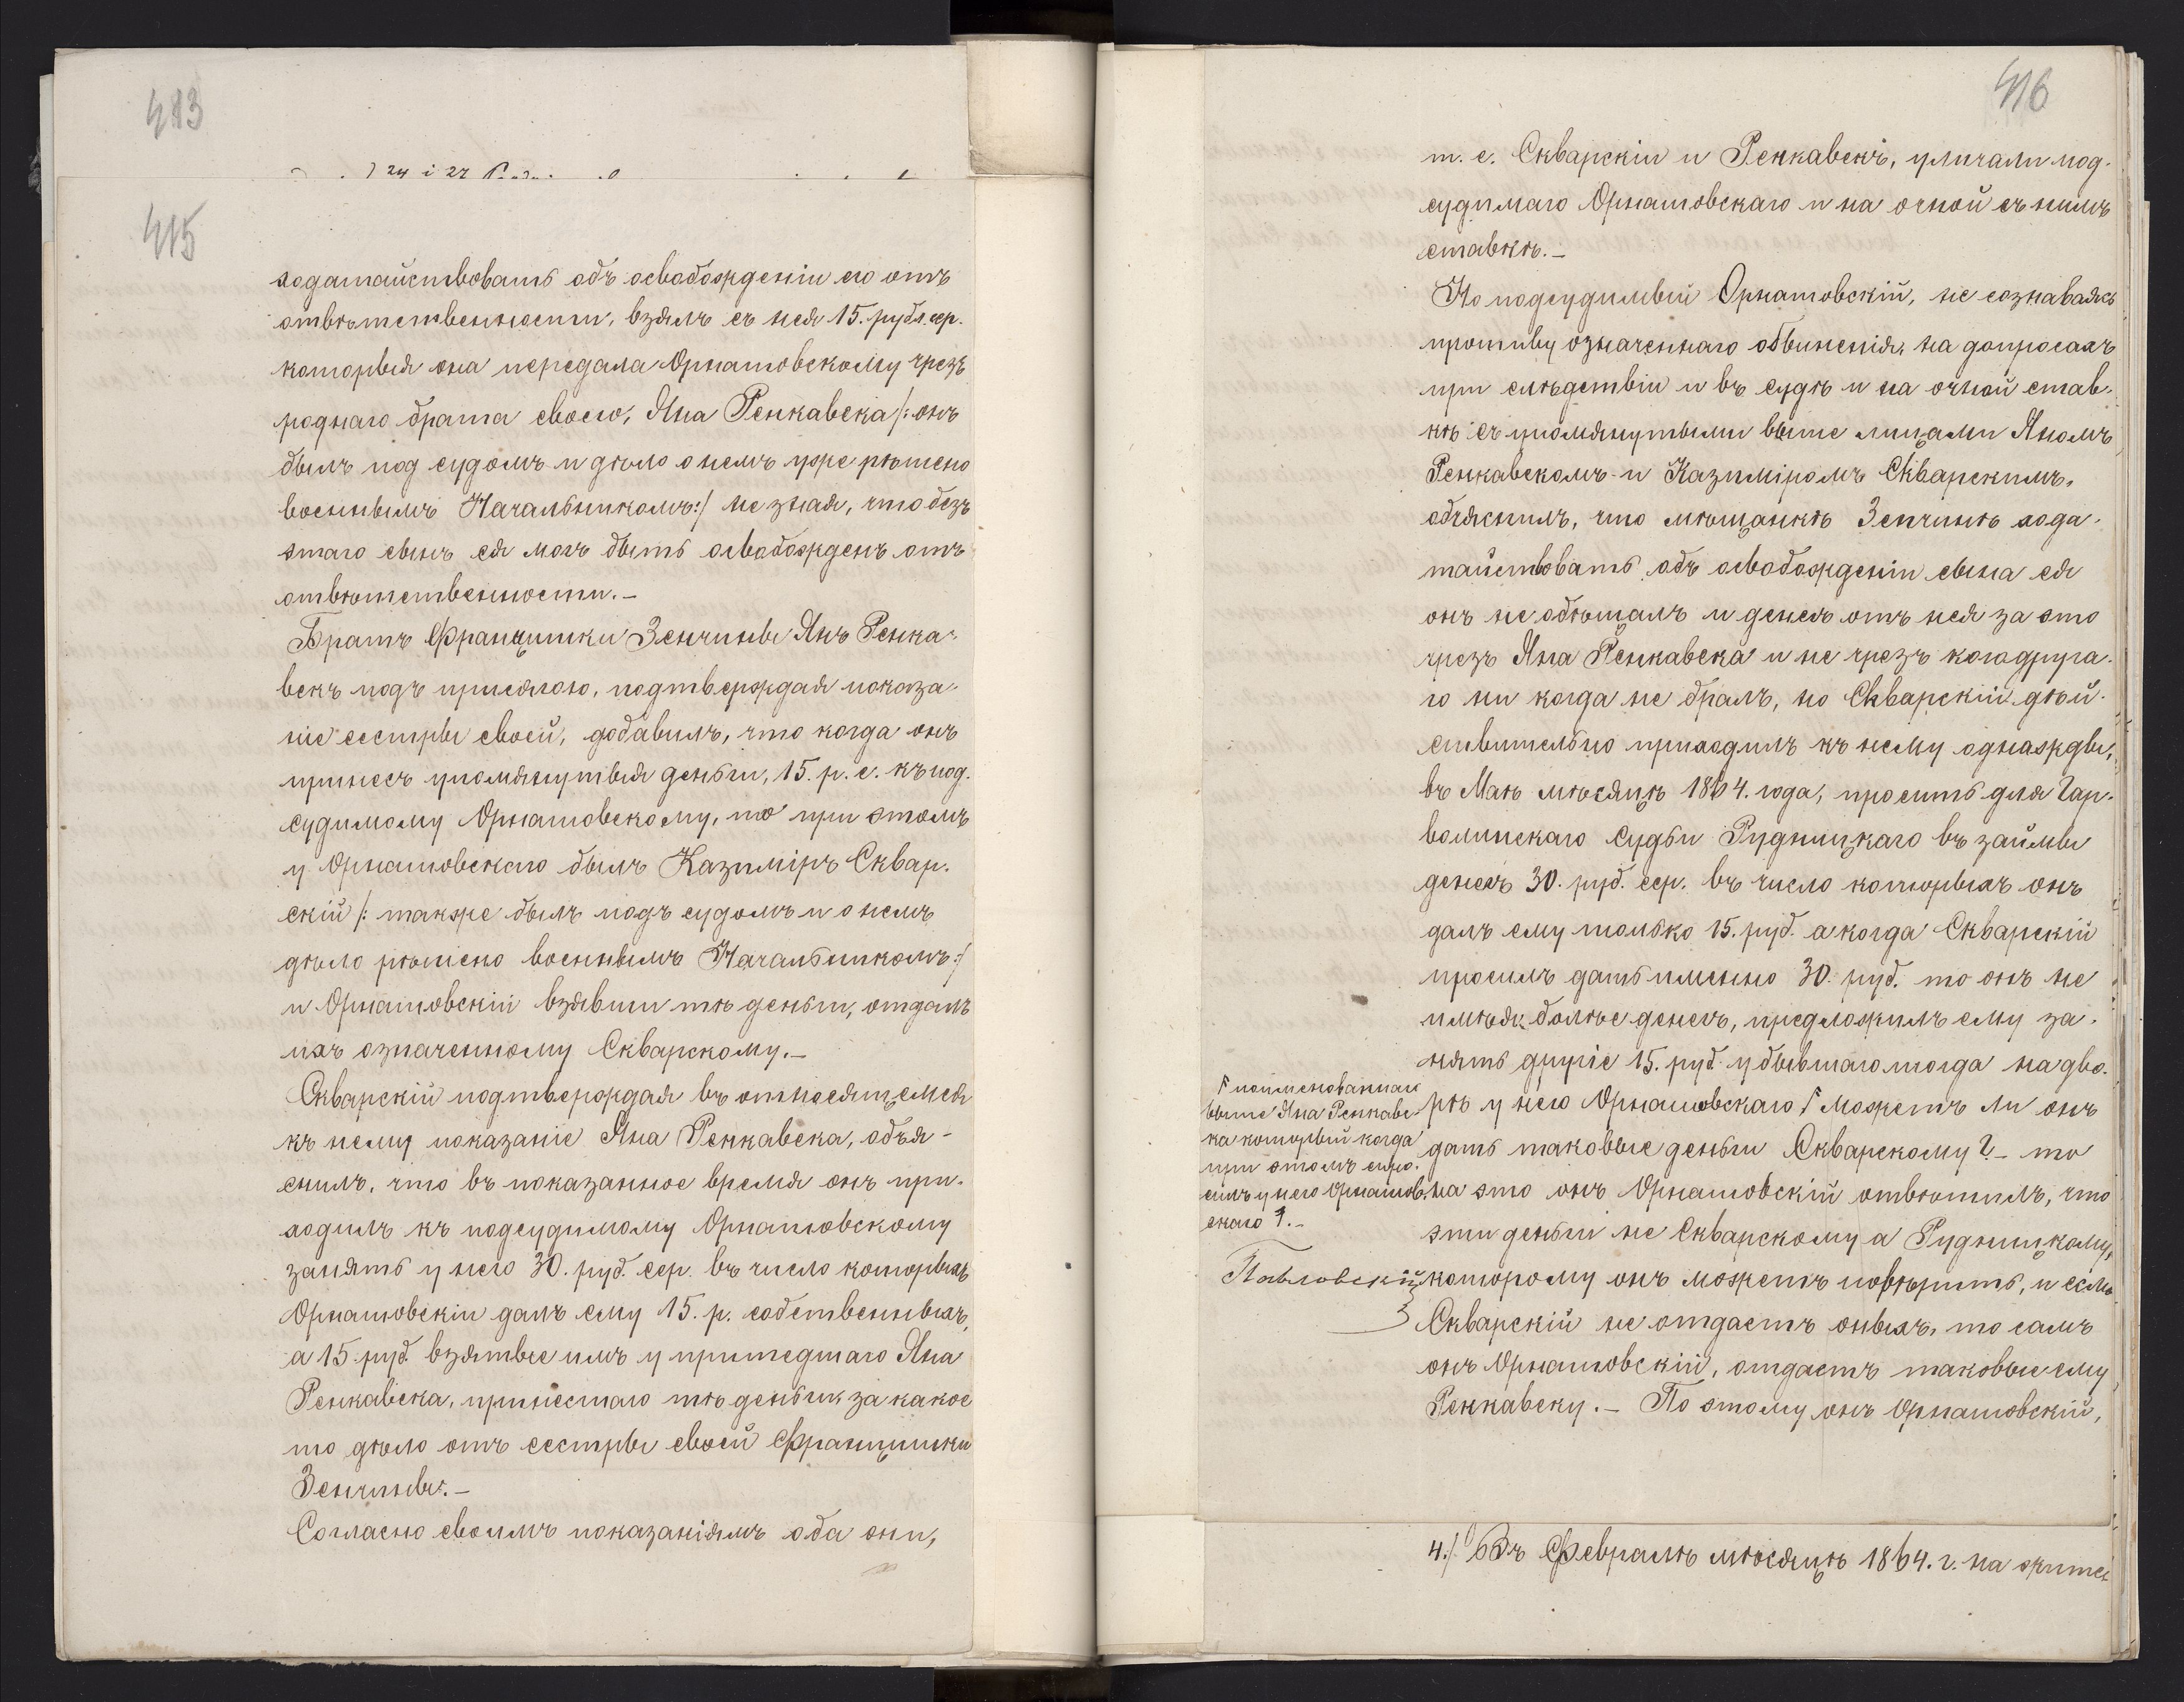 413
415
ходатайствовать объ освобожденіи его отъ
отвѣтственности, взялъ съ нея 15. рубл. сер.
которыя она передала Орнатовскому чрезъ
роднаго брата своего, Яна Ренкавека /: онъ
былъ под судомъ и дѣло о немъ уже рѣшено
военнымъ Начальникомъ :/ не зная, что безъ
этаго сынъ ея могъ быть освобожденъ отъ
отвѣтственности. –
Братъ Францишки Зенчины Янъ Ренка-
векъ подъ присягою, подтверждая показа-
ніе сестры своей, добавилъ, что когда онъ
принесъ упомянутыя деньги, 15. р. с. къ под-
судимому Орнатовскому, то при этомъ
у Орнатовскаго былъ Казиміръ Сквар-
скій /: также былъ подъ судомъ и о немъ
дѣло рѣшено военнымъ Начальникомъ :/
и Орнатовскій взявши тѣ деньги, отдалъ
ихъ означенному Скварскому. –
Скварскій подтверждая въ относящемся
къ нему показаніе Яна Ренкавека, объя-
снилъ, что въ показанное время онъ при-
ходилъ къ подсудимому Орнатовскому
занять у него 30. руб. сер. въ число которыхъ
Орнатовскій далъ ему 15. р. собственныхъ,
а 15 руб. взятые имъ у пришедшаго Яна
Ренкавека, принесшаго тѣ деньги за какое
то дѣло отъ сестры своей Францишки
Зенчины. –
Согласно своимъ показаніямъ оба они,
416
т. е. Скварскій и Ренкавекъ, уличали под-
судимаго Орнатовскаго и на очной съ нимъ
ставкѣ. –
Но подсудимый Орнатовскій, не сознаваясь
противу означеннаго обвиненія, на допросахъ
при слѣдствіи и въ судѣ и на очной став-
кѣ съ упомянутыми выше лицами Яномъ
Ренкавекомъ и Казиміромъ Скварскимъ,
объяснилъ, что мѣщанкѣ Зенчинѣ хода-
тайствовать объ освобожденіи сына ея
онъ не обѣщалъ и денегъ отъ нея за это
чрезъ Яна Ренкавека и не чрезъ кого друга-
го ни когда не бралъ, но Скварскій дѣй-
ствительно приходилъ къ нему однажды,
въ Маѣ мѣсяцѣ 1864. года, просить для Гар-
волинскаго Судьи Рудницкаго въ займы
денегъ 30. руб. сер. въ число которыхъ онъ
далъ ему только 15. руб. а когда Скварскій
просилъ дать именно 30. руб. то онъ не
имѣя болѣе денегъ, предложилъ ему за-
нять другіе 15. руб. у бывшаго тогда на дво-
рѣ у него Орнатовскаго Г Можетъ ли онъ
дать таковые деньги Скварскому? – то
на это онъ Орнатовскій отвѣтилъ, что
эти деньги не Скварскому а Рудницкому,
которому онъ можетъ повѣрить, и если
Скварскій не отдастъ оныхъ, то самъ
онъ Орнатовскій, отдастъ таковые ему
Ренкавеку. – По этому онъ Орнатовскій,
Г поименованнаго
выше Яна Ренкаве-
ка который когда
при этомъ спро-
силъ у него Орнатов-
скаго Г. –
Павловскій
4./ Въ Февралѣ мѣсяцѣ 1864. г. на жите